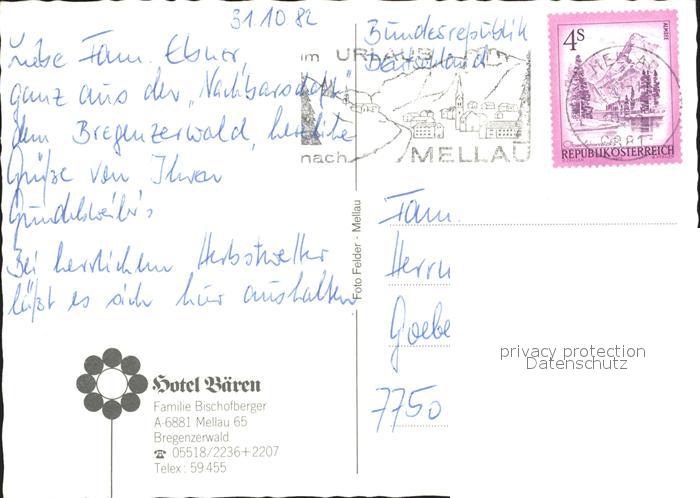 31.10 82
Liebe Fam. Ebner,
ganz aus der „Nachbarschaft"
dem Bregenzerwald, herzliche
Grüße von Ihren
Bei herrlichem Herbstwetter
läßt es sich hier aushalten.
Bundesrepublik
Deutschland
im URLAUB
nach MELLAU
4S
ALMSEE
MELLAU
6881
REPUBLIK ÖSTERREICH
Foto Felder - Mellau
Fam.
Herrn
Goebe
7750
privacy protection
Datenschutz
Hotel Bären
Familie Bischofberger
A-6881 Mellau 65
Bregenzerwald
☎ 05518/2236+2207
Telex: 59455